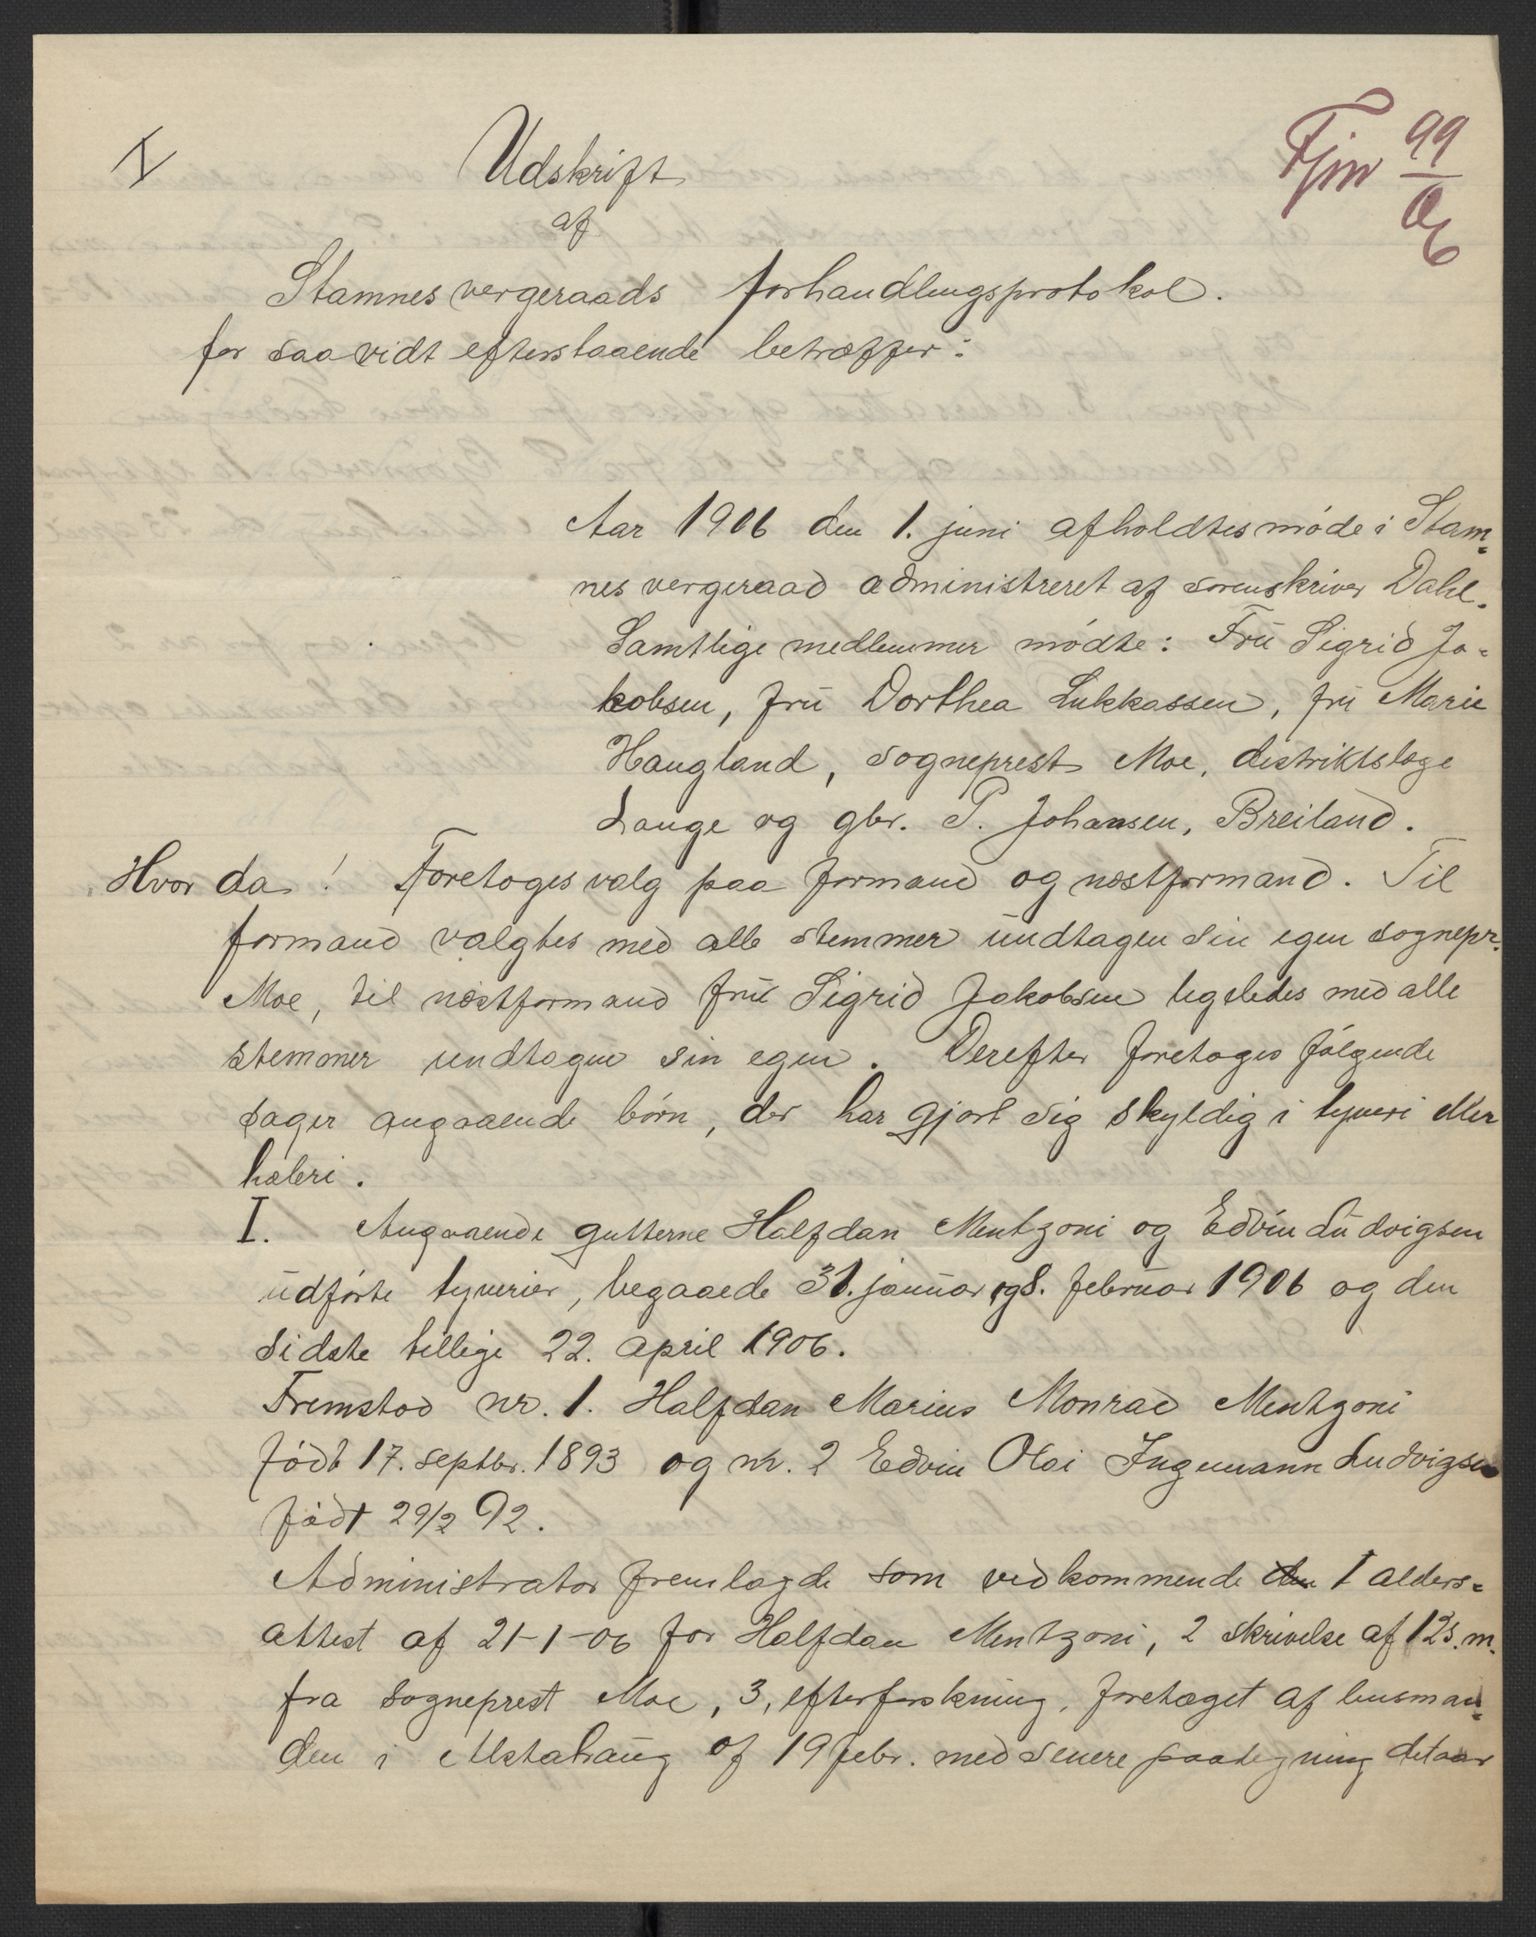 I
Fjm 99/06
Udskrift
af
Stamnes vergeraads forhandlingsprotokol.
for saavidt efterstaaende betræffer:
Aar 1906 den 1. juni afholdtes møde i Stam=
nes vergeraad administreret af sorenskriver Dahl.
Samtlige medlemmer mødte: Fru Sigrid Ja=
kobsen, fru Dorthea Lukkassen, fru Marie
Haugland, sogneprest Moe, distriktslæge
Lange og gbr. P. Johansen, Breiland.
Hvor da! Foretoges valg paa formand og næstformand. Til
formand valgtes med alle stemmer undtagen sin egen sognepr.
Moe, til næstformand fru Sigrid Jakobsen ligeledes med alle
stemmer undtagen sin egen. Derefter foretoges følgende
sager angaaende børn, der har gjort sig skyldig i tyveri eller
hæleri.
I. Angaaende gutterne Halfdan Mentzoni og Edvin Ludvigsen
udførte tyverier, begaaede 31. januar og 8. februar 1906 og den
sidste tillige 22. april 1906.
Fremstod nr. 1. Halfdan Marius Monrad Mentzoni
født 17. septbr. 1893 og nr. 2 Edvin Olai Ingemann Ludvigsen
født 29/2 92.
Administrator fremlagde som vedkommende den 1 alders=
attest af 21-1-06 for Halfdan Mentzoni, 2 skrivelse af 12 s. m.
fra sogneprest Moe, 3, efterforskning, foretaget af lensman=
den i Alstahaug af 19 febr. med senere paategning detaar